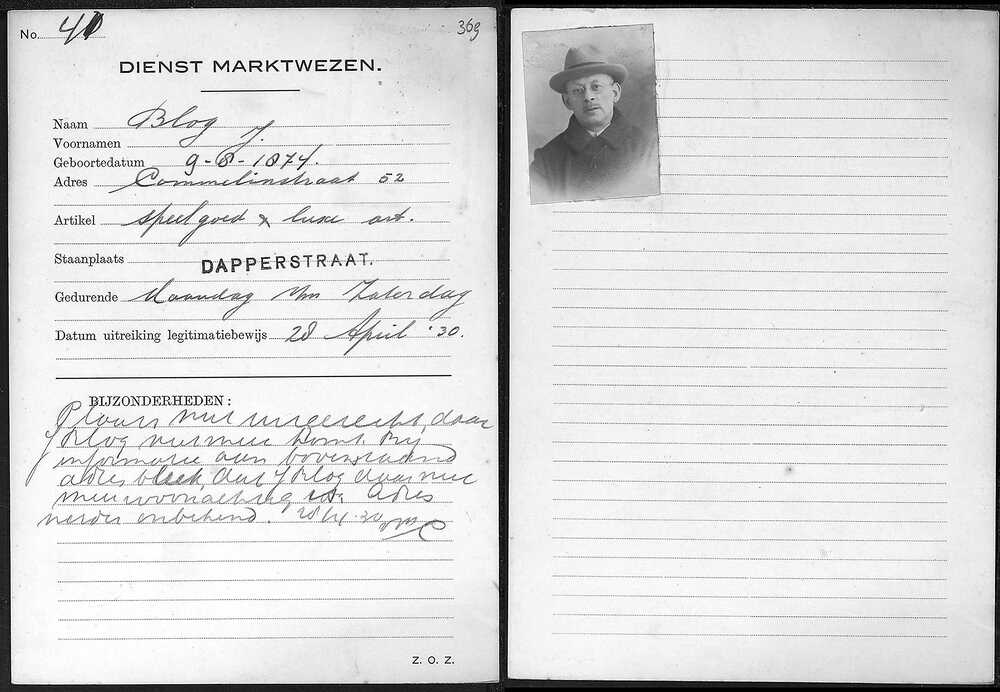 No. 41
369
DIENST MARKTWEZEN.
Naam Blog
Voornamen J.
Geboortedatum 9-8-1874.
Adres Commelinstraat 52
Artikel speelgoed & luxe art.
Staanplaats DAPPERSTRAAT.
Gedurende Maandag t/m Zaterdag
Datum uitreiking legitimatiebewijs 28 April '30.
BIJZONDERHEDEN:
Plaats niet daar
J Blog niet meer komt. Bij
informatie aan bovenstaand
adres bleek, dat J Blog daar niet
meer woonachtig is. Adres
verder onbekend. 30
Z. O. Z.